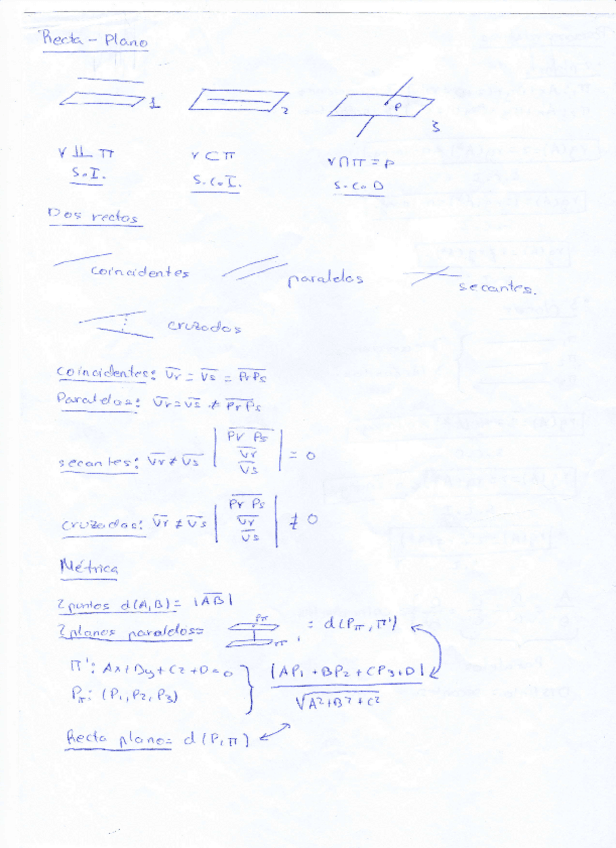 Recta - Plano
1 2 P 3
r ⫫ π r ⊂ π r ∩ π = P
S.I. S.C.I. S.C.D
Dos rectas
coincidentes paralelas secantes.
cruzadas
Coincidentes: Vr = Vs = PrPs
Paralelas: Vr = Vs ≠ PrPs
secantes: Vr ≠ Vs | Pr Ps Vr Vs | = 0
cruzadas: Vr ≠ Vs | Pr Ps Vr Vs | ≠ 0
Métrica
2 puntos d(A,B) = |AB|
2 planos paralelos = Pπ π' = d(Pπ, π')
π': Ax + By + Cz + D = 0
Pπ: (P1, P2, P3) } |AP1 + BP2 + CP3 + D| / √A²+B²+C²
Recta plano = d(P, π)